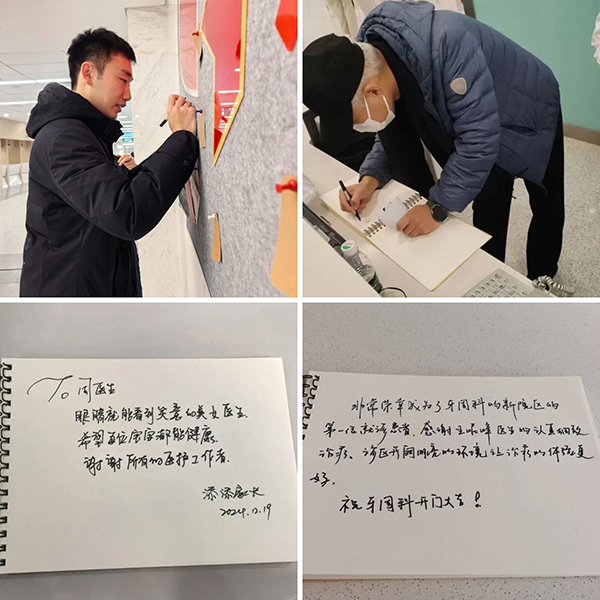 To 周医生
眼睛就能看到笑意的美女医生
希望每位宝宝都能健康.
谢谢所有的医护工作者.
添添家长
2024.12.19
非常荣幸成为了牙周科的新院区的
第一位就诊患者. 感谢王晓峰医生的认真细致
治疗. 诊区开阔明亮的环境让诊疗的体验更
好.
祝牙周科开门大吉!